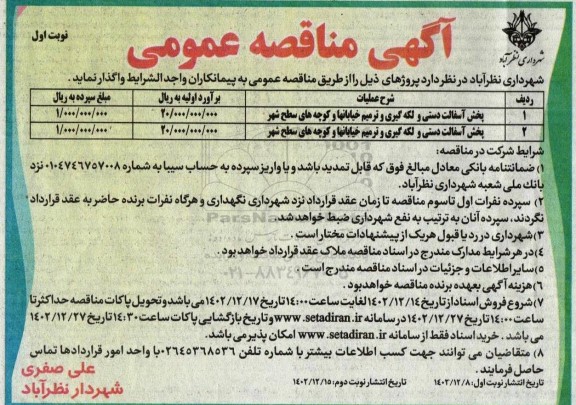 شهرداری نظرآباد
نوبت اول
آگهی مناقصه عمومی
شهرداری نظرآباد در نظر دارد پروژهای ذیل را از طریق مناقصه عمومی به پیمانکاران واجد الشرایط واگذار نماید.
ردیف شرح عملیات برآورد اولیه به ریال مبلغ سپرده به ریال
۱ پخش آسفالت دستی و لکه گیری و ترمیم خیابانها و کوچه های سطح شهر ۲۰/۰۰۰/۰۰۰/۰۰۰ ۱/۰۰۰/۰۰۰/۰۰۰
۲ پخش آسفالت دستی و لکه گیری و ترمیم خیابانها و کوچه های سطح شهر ۲۰/۰۰۰/۰۰۰/۰۰۰ ۱/۰۰۰/۰۰۰/۰۰۰
شرایط شرکت در مناقصه:
۱) ضمانتنامه بانکی معادل مبالغ فوق که قابل تمدید باشد و یا واریز سپرده به حساب سیبا به شماره ۰۱۰۴۷۴۶۷۵۷۰۰۸ نزد
بانک ملی شعبه شهرداری نظرآباد.
۲) سپرده نفرات اول تا سوم مناقصه تا زمان عقد قرارداد نزد شهرداری نگهداری و هرگاه نفرات برنده حاضر به عقد قرارداد
نگردند، سپرده آنان به ترتیب به نفع شهرداری ضبط خواهد شد.
۳) شهرداری در رد یا قبول هریک از پیشنهادات مختار است .
۴) در هر شرایط مدارک مندرج در اسناد مناقصه ملاک عقد قرارداد خواهد بود .
۵) سایر اطلاعات و جزئیات در اسناد مناقصه مندرج است .
۶) هزینه آگهی بعهده برنده مناقصه خواهد بود .
۷) شروع فروش اسناد از تاریخ ۱۴۰۲/۱۲/۱۴ لغایت ساعت ۱۴:۰۰ تاریخ ۱۴۰۲/۱۲/۱۷ می باشد و تحویل پاکات مناقصه حداکثر تا
ساعت ۱۴:۰۰ تاریخ ۱۴۰۲/۱۲/۲۷ در سامانه www.setadiran.ir و تاریخ بازگشایی پاکات ساعت ۱۴:۳۰ تاریخ ۱۴۰۲/۱۲/۲۷
می باشد . خرید اسناد فقط از سامانه www.setadiran.ir امکان پذیر می باشد.
۸) متقاضیان می توانند جهت کسب اطلاعات بیشتر با شماره تلفن ۰۲۶۴۵۳۶۸۵۳۶ با واحد امور قراردادها تماس
حاصل فرمایند .
تاریخ انتشار نوبت اول: ۱۴۰۲/۱۲/۸ تاریخ انتشار نوبت دوم: ۱۴۰۲/۱۲/۱۵
علی صفری
شهردار نظرآباد